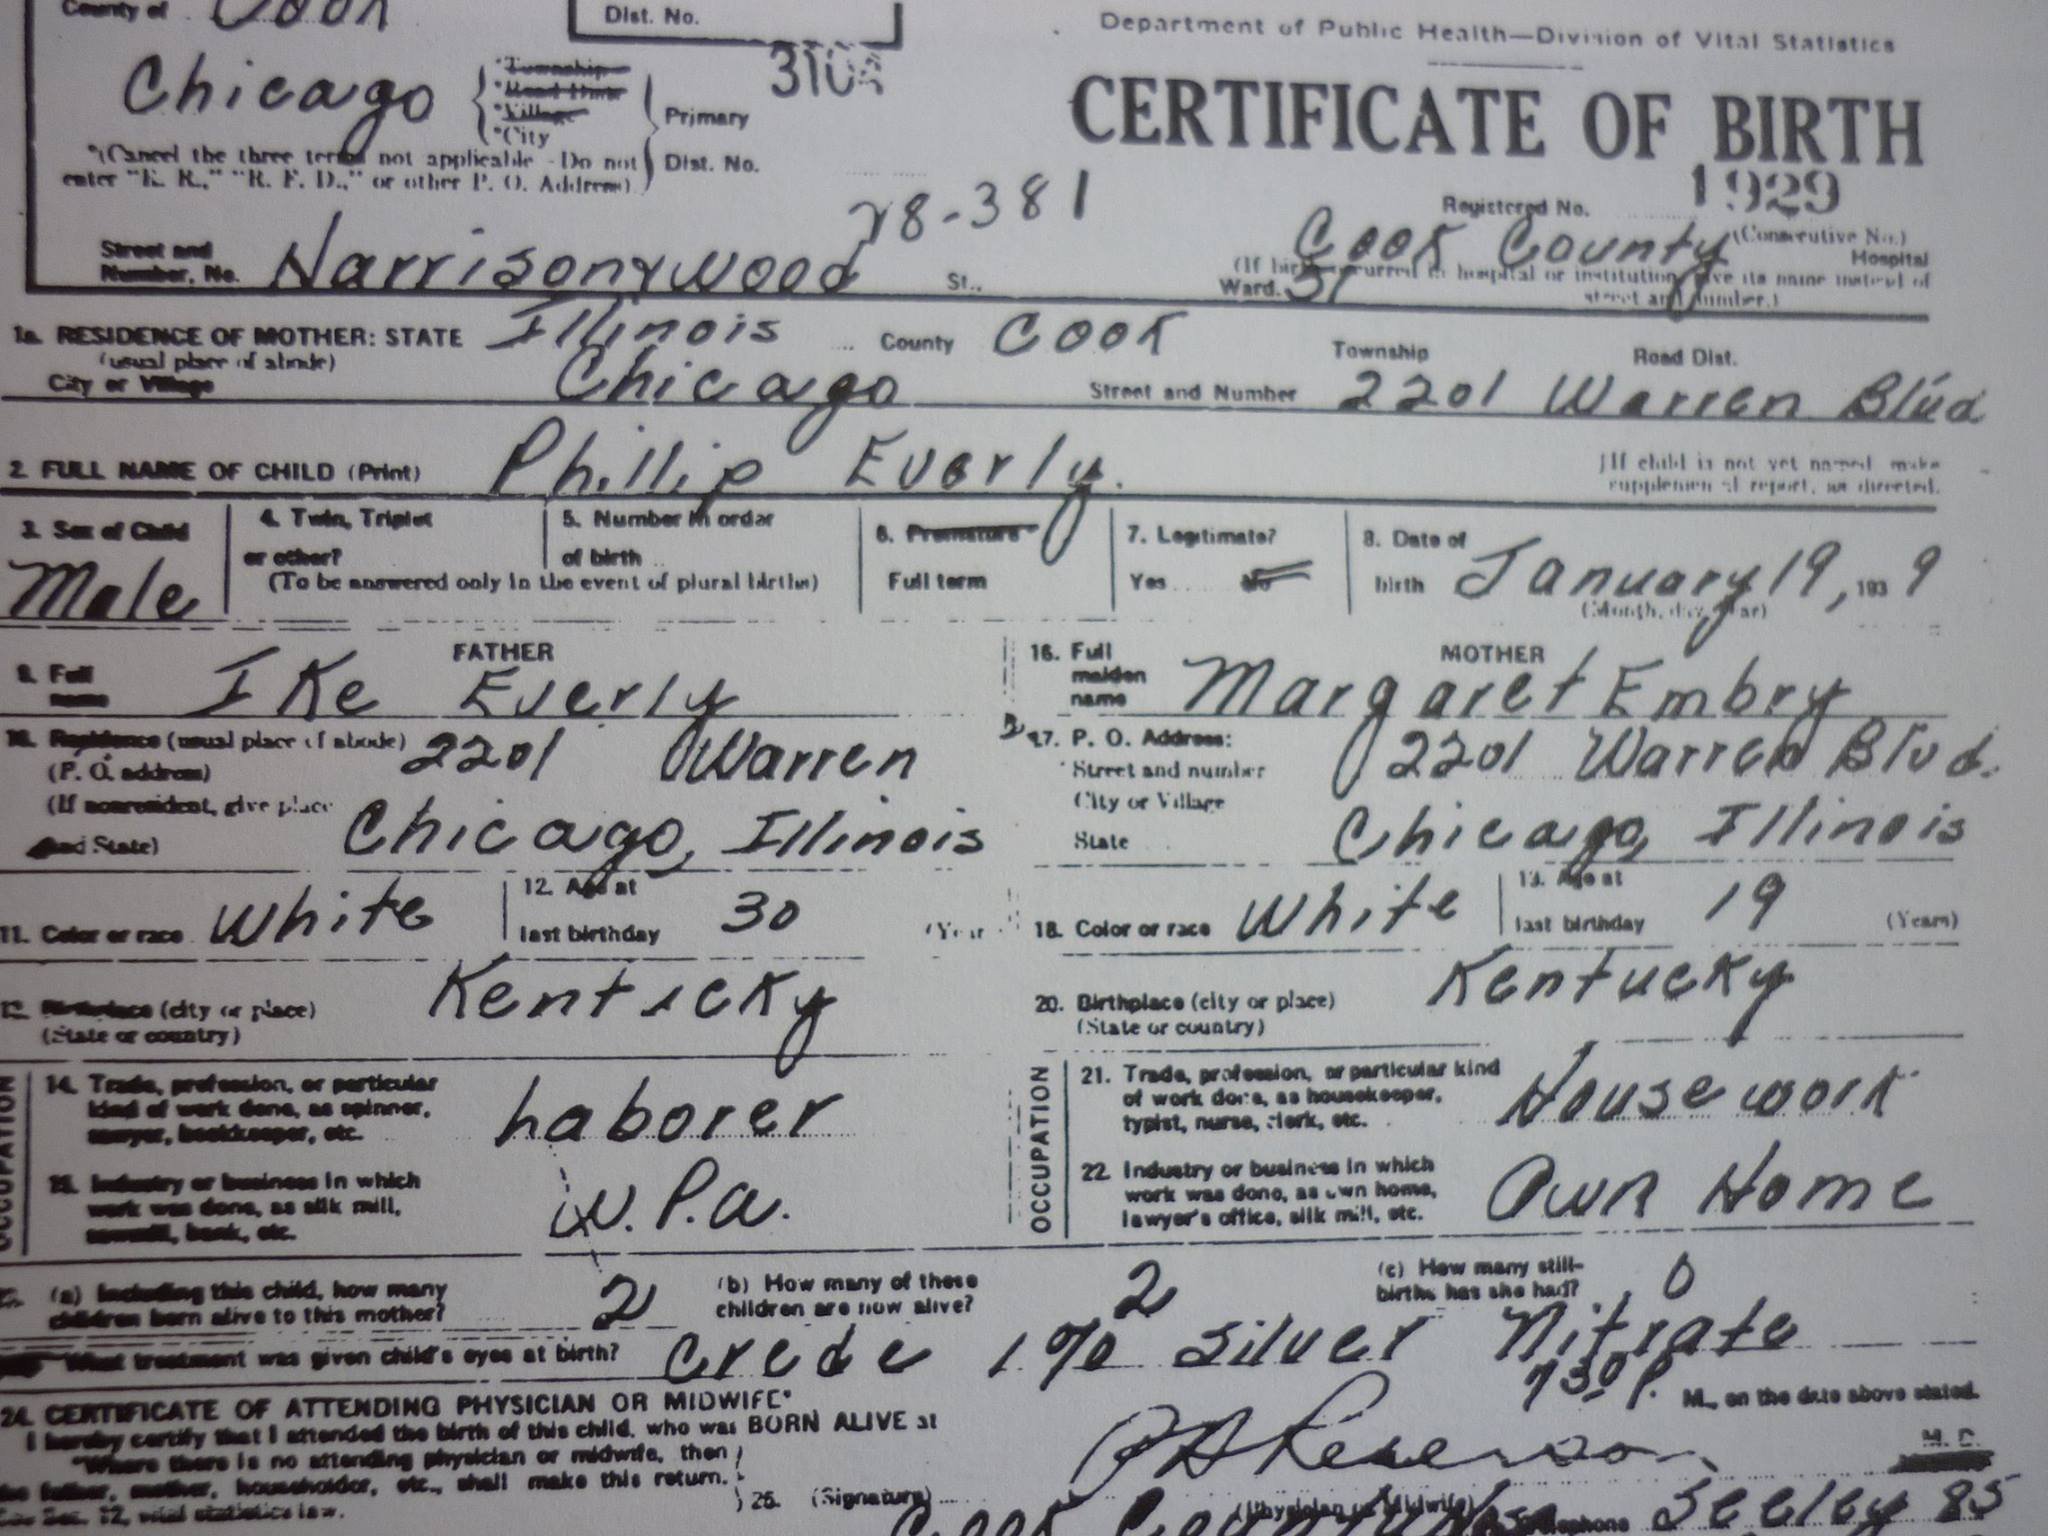 County of Cook
Dist. No.
Department of Public Health—Division of Vital Statistics
Chicago
*Township
*Road Dist.
*Village
*City
Primary
Dist. No.
310
CERTIFICATE OF BIRTH
*(Cancel the three terms not applicable - Do not
enter "R. R.," "R. F. D.," or other P. O. Address)
28-381
Registered No. 1929
(Consecutive No.)
Street and
Number, No. Harrison & Wood St., Ward. 31 Cook County Hospital
(If birth occurred in hospital or institution, give its name instead of
street and number.)
1a. RESIDENCE OF MOTHER: STATE Illinois County Cook Township Road Dist.
(usual place of abode)
City or Village Chicago Street and Number 2201 Warren Blvd
2. FULL NAME OF CHILD (Print) Phillip Everly.
If child is not yet named make
supplemental report, as directed.
3. Sex of Child Male
4. Twin, Triplet
or other?
5. Number in order
of birth
(To be answered only in the event of plural births)
6. Premature
Full term
7. Legitimate?
Yes No
8. Date of
birth January 19, 1939
(Month, day, year)
FATHER
9. Full
name Ike Everly
10. Residence (usual place of abode) 2201 Warren
(P. O. address)
(If nonresident, give place
and State) Chicago, Illinois
11. Color or race White
12. Age at
last birthday 30 (Year
13. Birthplace (city or place) Kenticky
(State or country)
OCCUPATION
14. Trade, profession, or particular
kind of work done, as spinner,
sawyer, bookkeeper, etc. Laborer
15. Industry or business in which
work was done, as silk mill,
sawmill, bank, etc. W.P.A.
MOTHER
16. Full
maiden
name Margaret Embry
17. P. O. Address:
Street and number 2201 Warren Blvd.
City or Village
State Chicago, Illinois
18. Color or race White
19. Age at
last birthday 19 (Years)
20. Birthplace (city or place) Kentucky
(State or country)
OCCUPATION
21. Trade, profession, or particular kind
of work done, as housekeeper,
typist, nurse, clerk, etc. Housework
22. Industry or business in which
work was done, as own home,
lawyer's office, silk mill, etc. Own Home
23. (a) Including this child, how many
children born alive to this mother? 2
(b) How many of these
children are now alive? 2
(c) How many still-
births has she had? 0
What treatment was given child's eyes at birth? Crede 1% Silver Nitrate
24. CERTIFICATE OF ATTENDING PHYSICIAN OR MIDWIFE*
I hereby certify that I attended the birth of this child, who was BORN ALIVE at 730 P. M., on the date above stated.
*Where there is no attending physician or midwife, then
the father, mother, householder, etc., shall make this return.
See Sec. 12, vital statistics law.
25. (Signature) M. D.
(Physician or Midwife)
Cook County Telephone Seeley 85